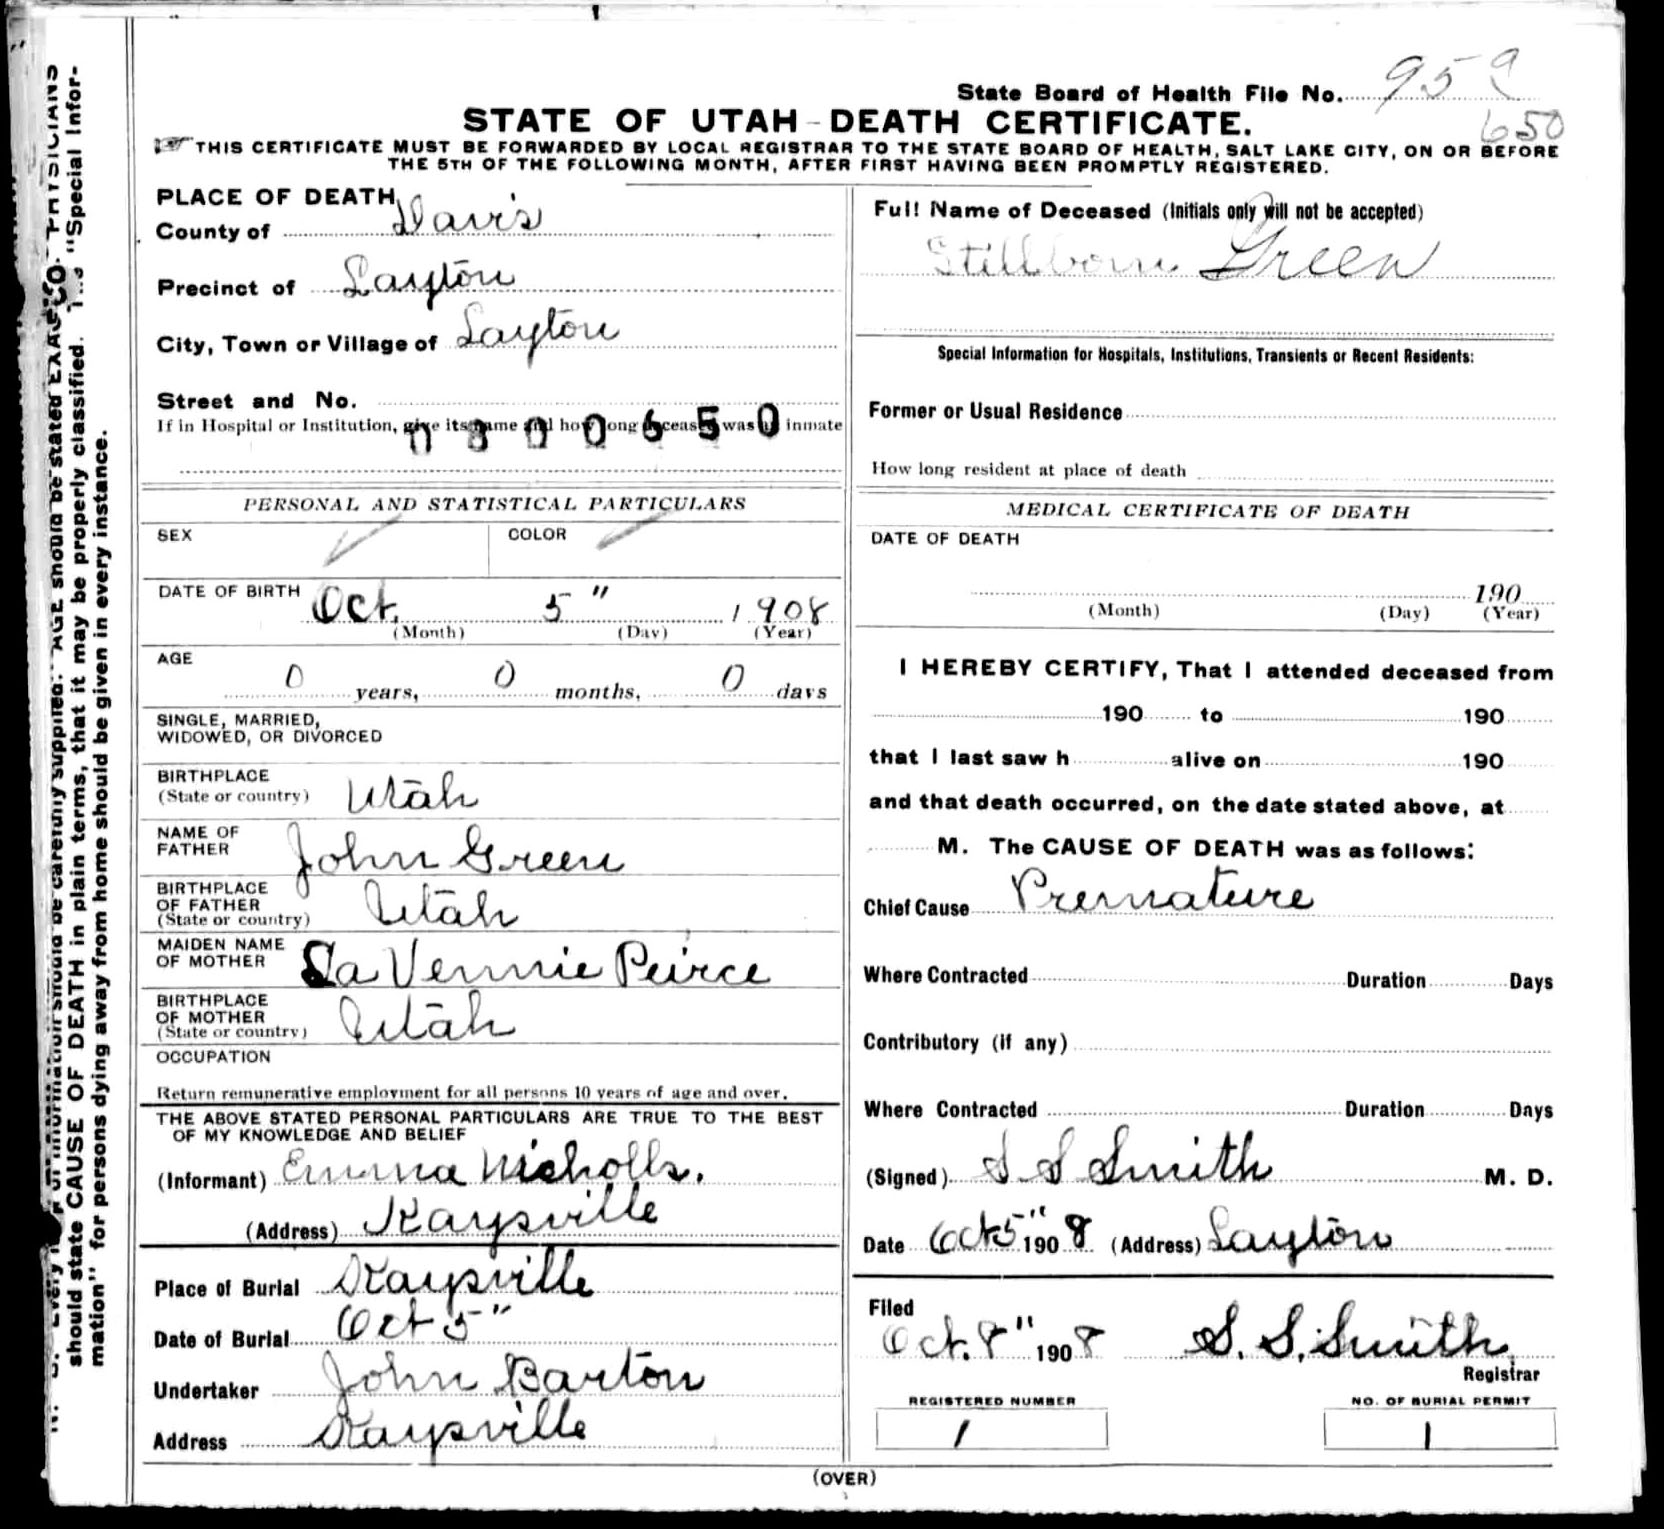 State Board of Health File No. 95
650
STATE OF UTAH - DEATH CERTIFICATE.
THIS CERTIFICATE MUST BE FORWARDED BY LOCAL REGISTRAR TO THE STATE BOARD OF HEALTH, SALT LAKE CITY, ON OR BEFORE
THE 5TH OF THE FOLLOWING MONTH, AFTER FIRST HAVING BEEN PROMPTLY REGISTERED.
PLACE OF DEATH
County of Davis
Precinct of Layton
City, Town or Village of Layton
Street and No.
If in Hospital or Institution, give its name and how long deceased was inmate
0800650
PERSONAL AND STATISTICAL PARTICULARS
SEX COLOR
DATE OF BIRTH Oct. 5" 1908
(Month) (Day) (Year)
AGE
0 years, 0 months, 0 days
SINGLE, MARRIED,
WIDOWED, OR DIVORCED
BIRTHPLACE
(State or country) Utah
NAME OF
FATHER John Green
BIRTHPLACE
OF FATHER
(State or country) Utah
MAIDEN NAME
OF MOTHER La Vennie Peirce
BIRTHPLACE
OF MOTHER
(State or country) Utah
OCCUPATION
Return remunerative employment for all persons 10 years of age and over.
THE ABOVE STATED PERSONAL PARTICULARS ARE TRUE TO THE BEST
OF MY KNOWLEDGE AND BELIEF
(Informant) Emma Nicholls.
(Address) Kaysville
Place of Burial Kaysville
Date of Burial Oct 5"
Undertaker John Barton
Address Kaysville
Full Name of Deceased (Initials only will not be accepted)
Stillborn Green
Special Information for Hospitals, Institutions, Transients or Recent Residents:
Former or Usual Residence
How long resident at place of death
MEDICAL CERTIFICATE OF DEATH
DATE OF DEATH
190
(Month) (Day) (Year)
I HEREBY CERTIFY, That I attended deceased from
190 to 190
that I last saw h alive on 190
and that death occurred, on the date stated above, at
M. The CAUSE OF DEATH was as follows:
Chief Cause Premature
Where Contracted Duration Days
Contributory (if any)
Where Contracted Duration Days
(Signed) S S Smith M. D.
Date Oct 5" 1908 (Address) Layton
Filed
Oct. 8" 1908 S. S. Smith
Registrar
REGISTERED NUMBER NO. OF BURIAL PERMIT
1 1
(OVER)
should be carefully supplied. AGE should be stated EXACTLY. PHYSICIANS
should state CAUSE OF DEATH in plain terms, that it may be properly classified. The "Special Infor-
mation" for persons dying away from home should be given in every instance.